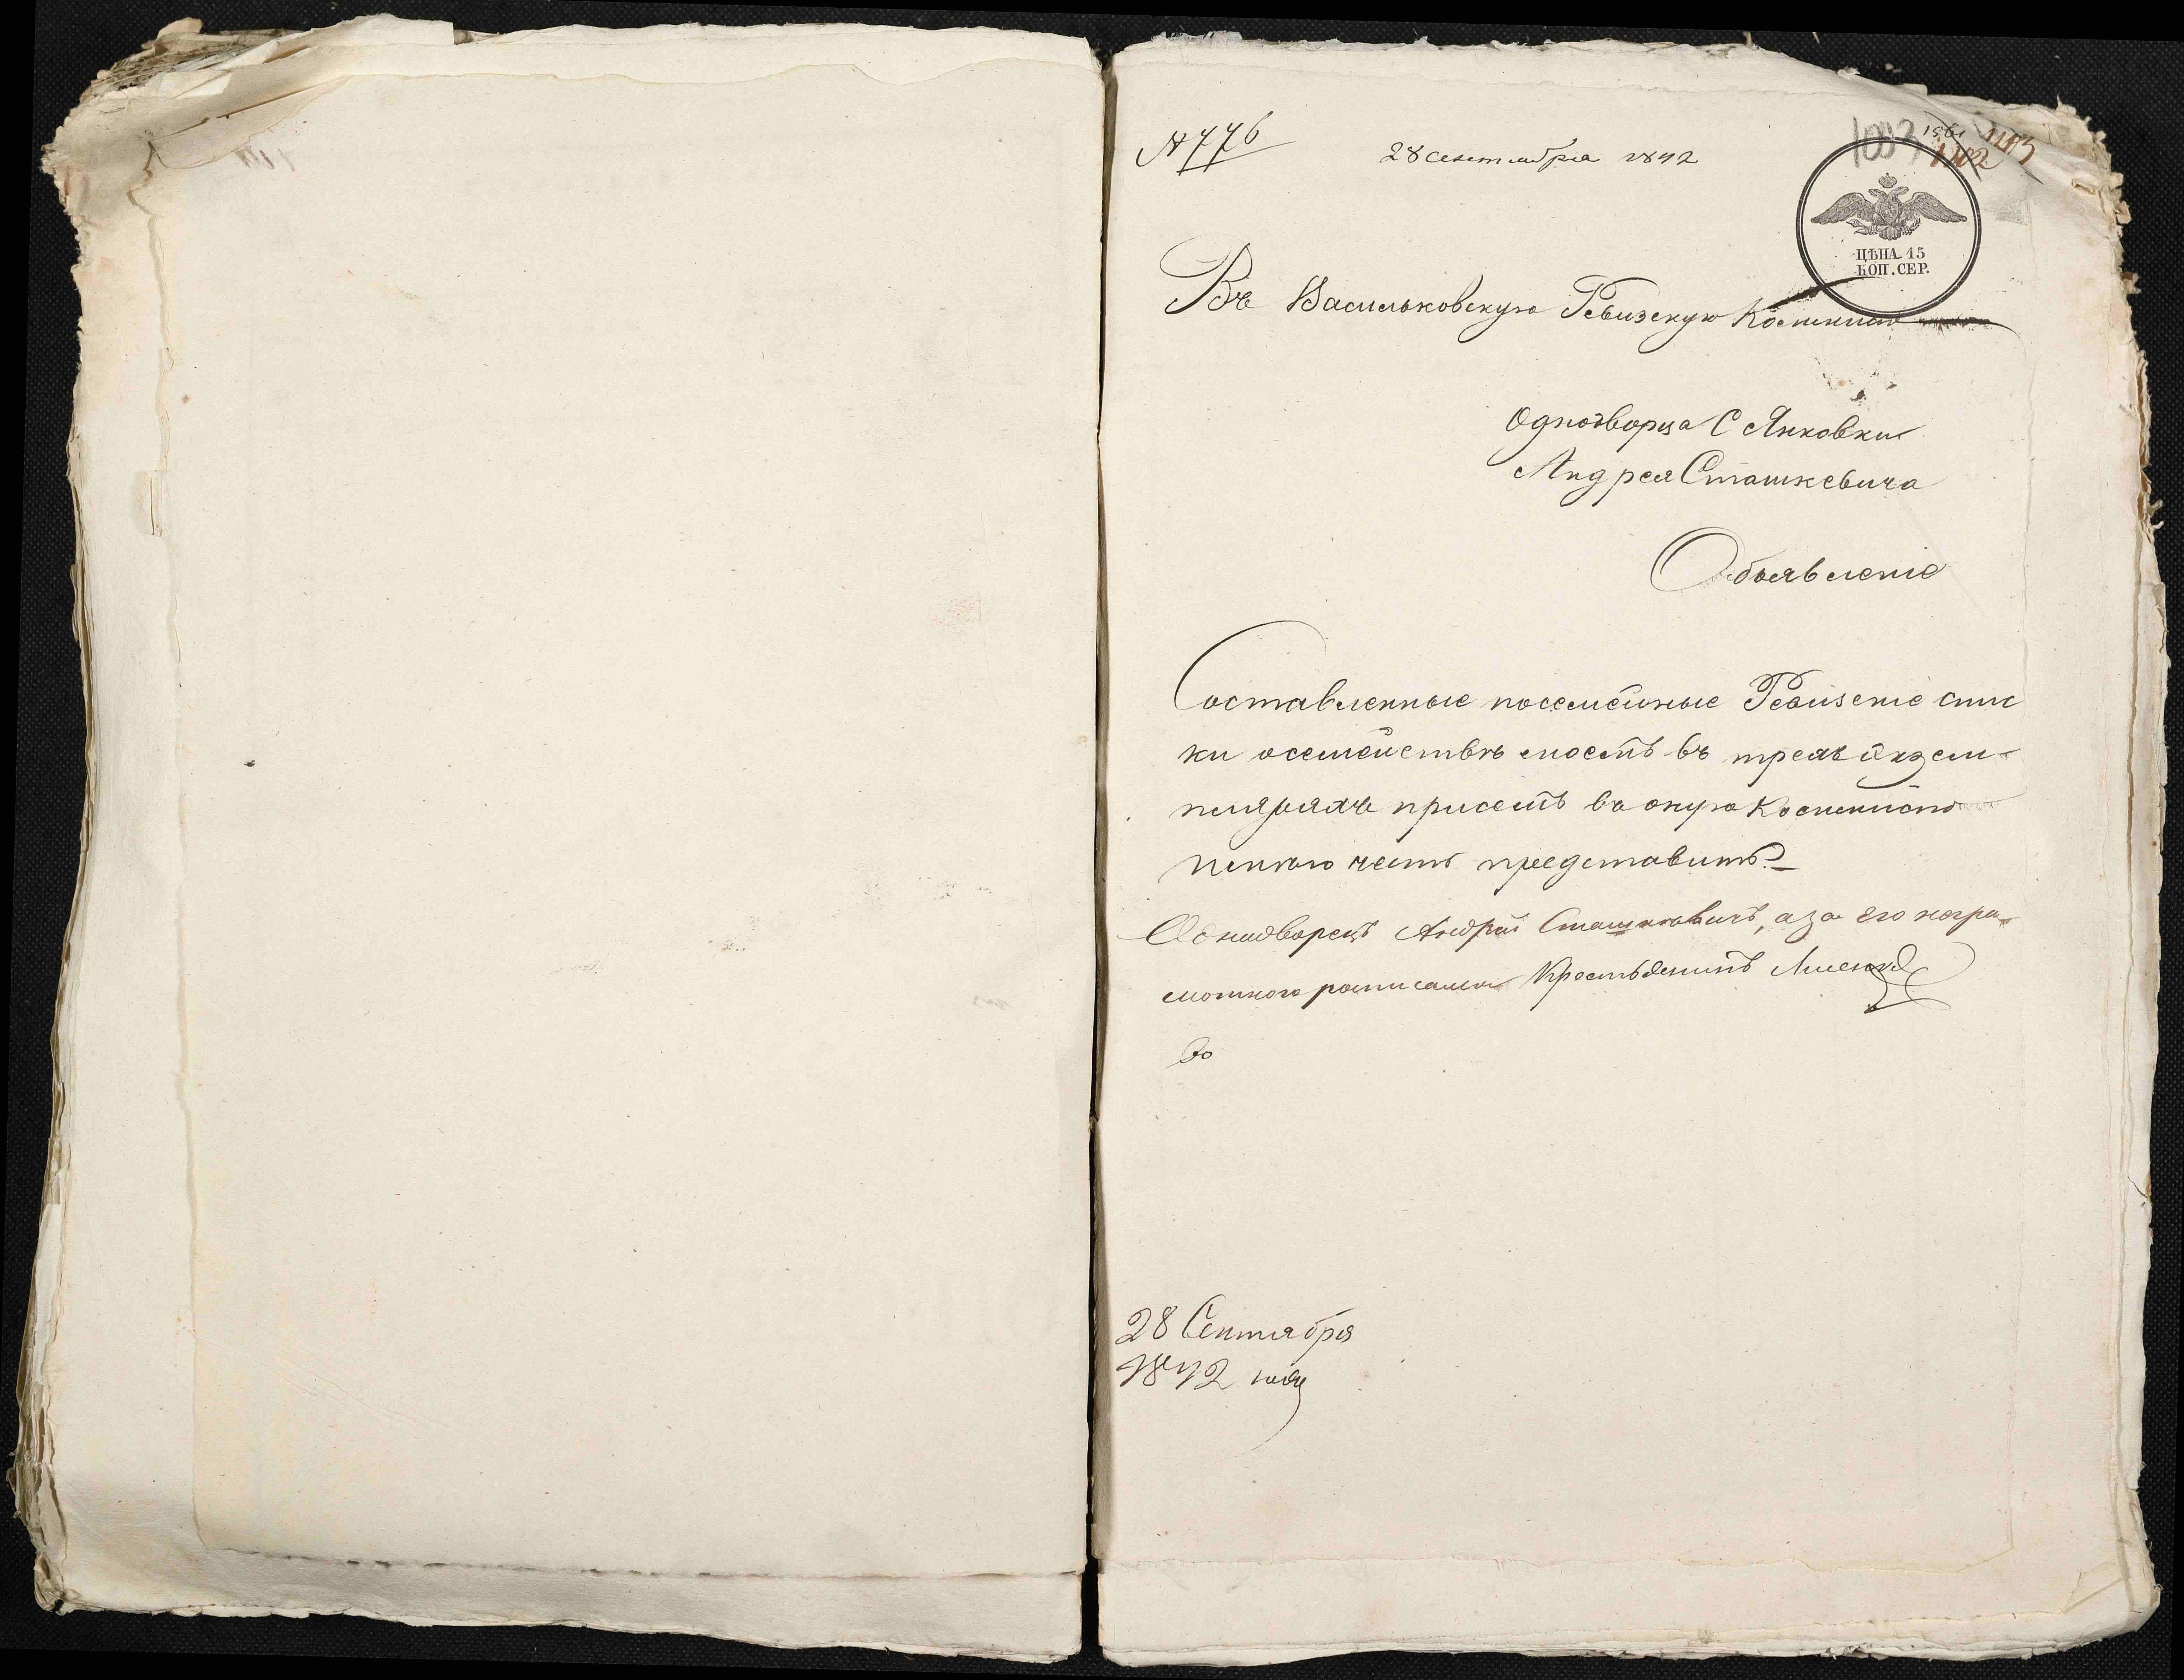 № 776
28 сентября 1842
1007 1561 1102 1103
ЦѢНА 15
КОП. СЕР.
Въ Васильковскую Ревизскую Коммисію
Однодворца С Янковки
Андрея Сташкевича
Объявленіе
Составленные посемейные Ревизскіе спис
ки осемействѣ моемъ въ трехъ экзем-
плярахъ присемъ въ оную Коммисію
имѣю честь представить.
Однодворецъ Андрей Сташкевичъ, аза его негра-
мотного росписался Крестьянинъ
28 Сентября
1842 года